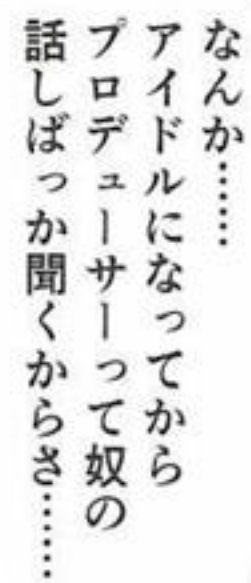 なんか……
アイドルになってから
プロデューサーって奴の
話しばっか聞くからさ……